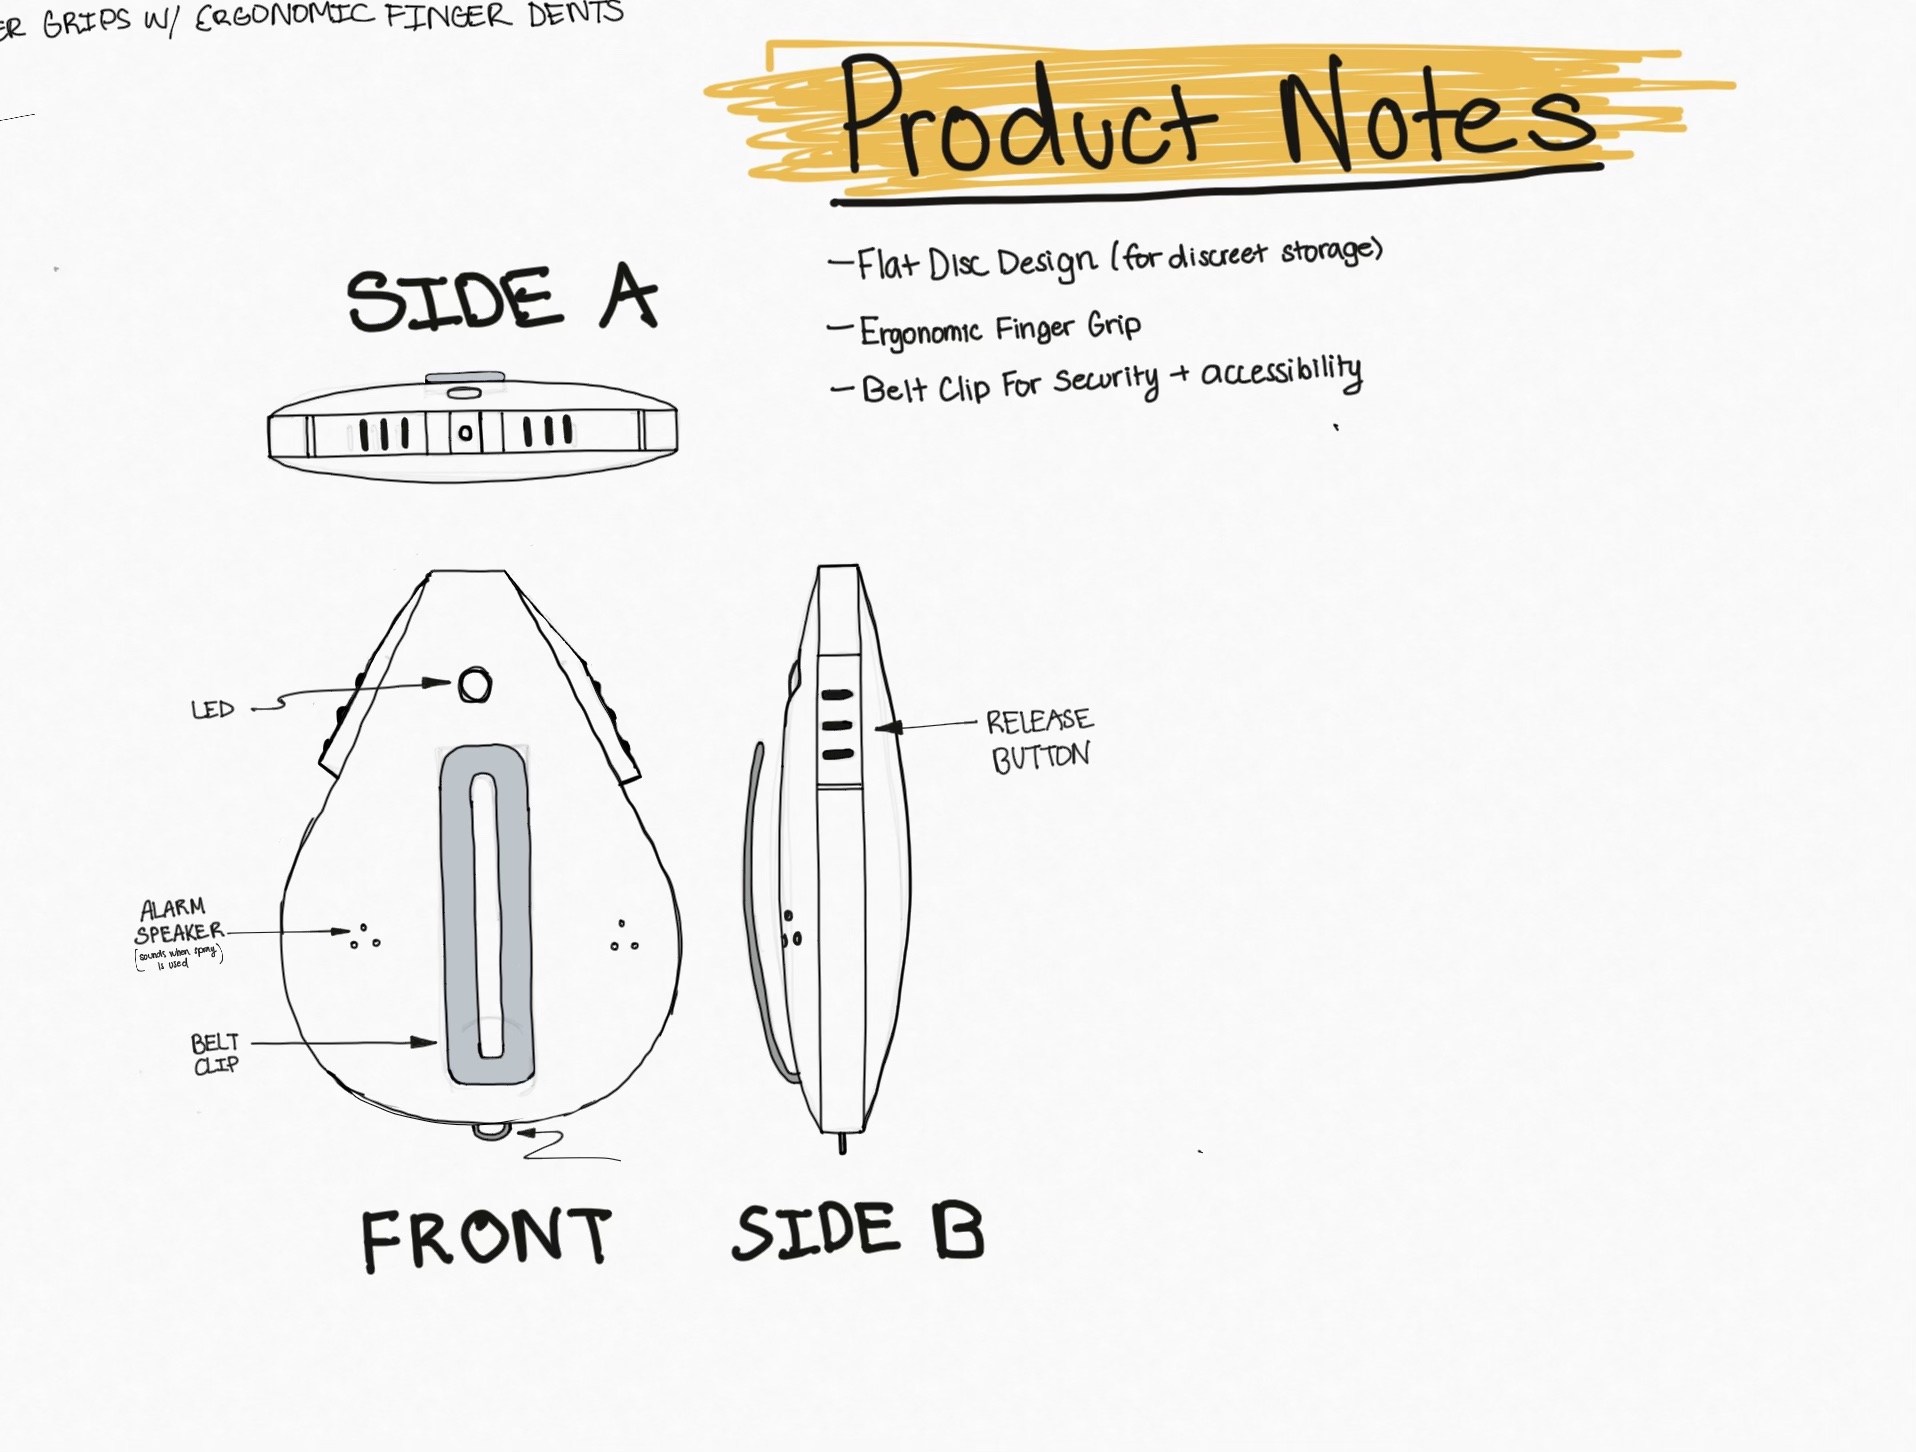 ER GRIPS W/ ERGONOMIC FINGER DENTS
Product Notes
—Flat Disc Design (for discreet storage)
—Ergonomic Finger Grip
—Belt Clip For Security + accessibility
SIDE A
LED
RELEASE
BUTTON
ALARM
SPEAKER
(sounds when spray)
is used
BELT
CLIP
FRONT
SIDE B